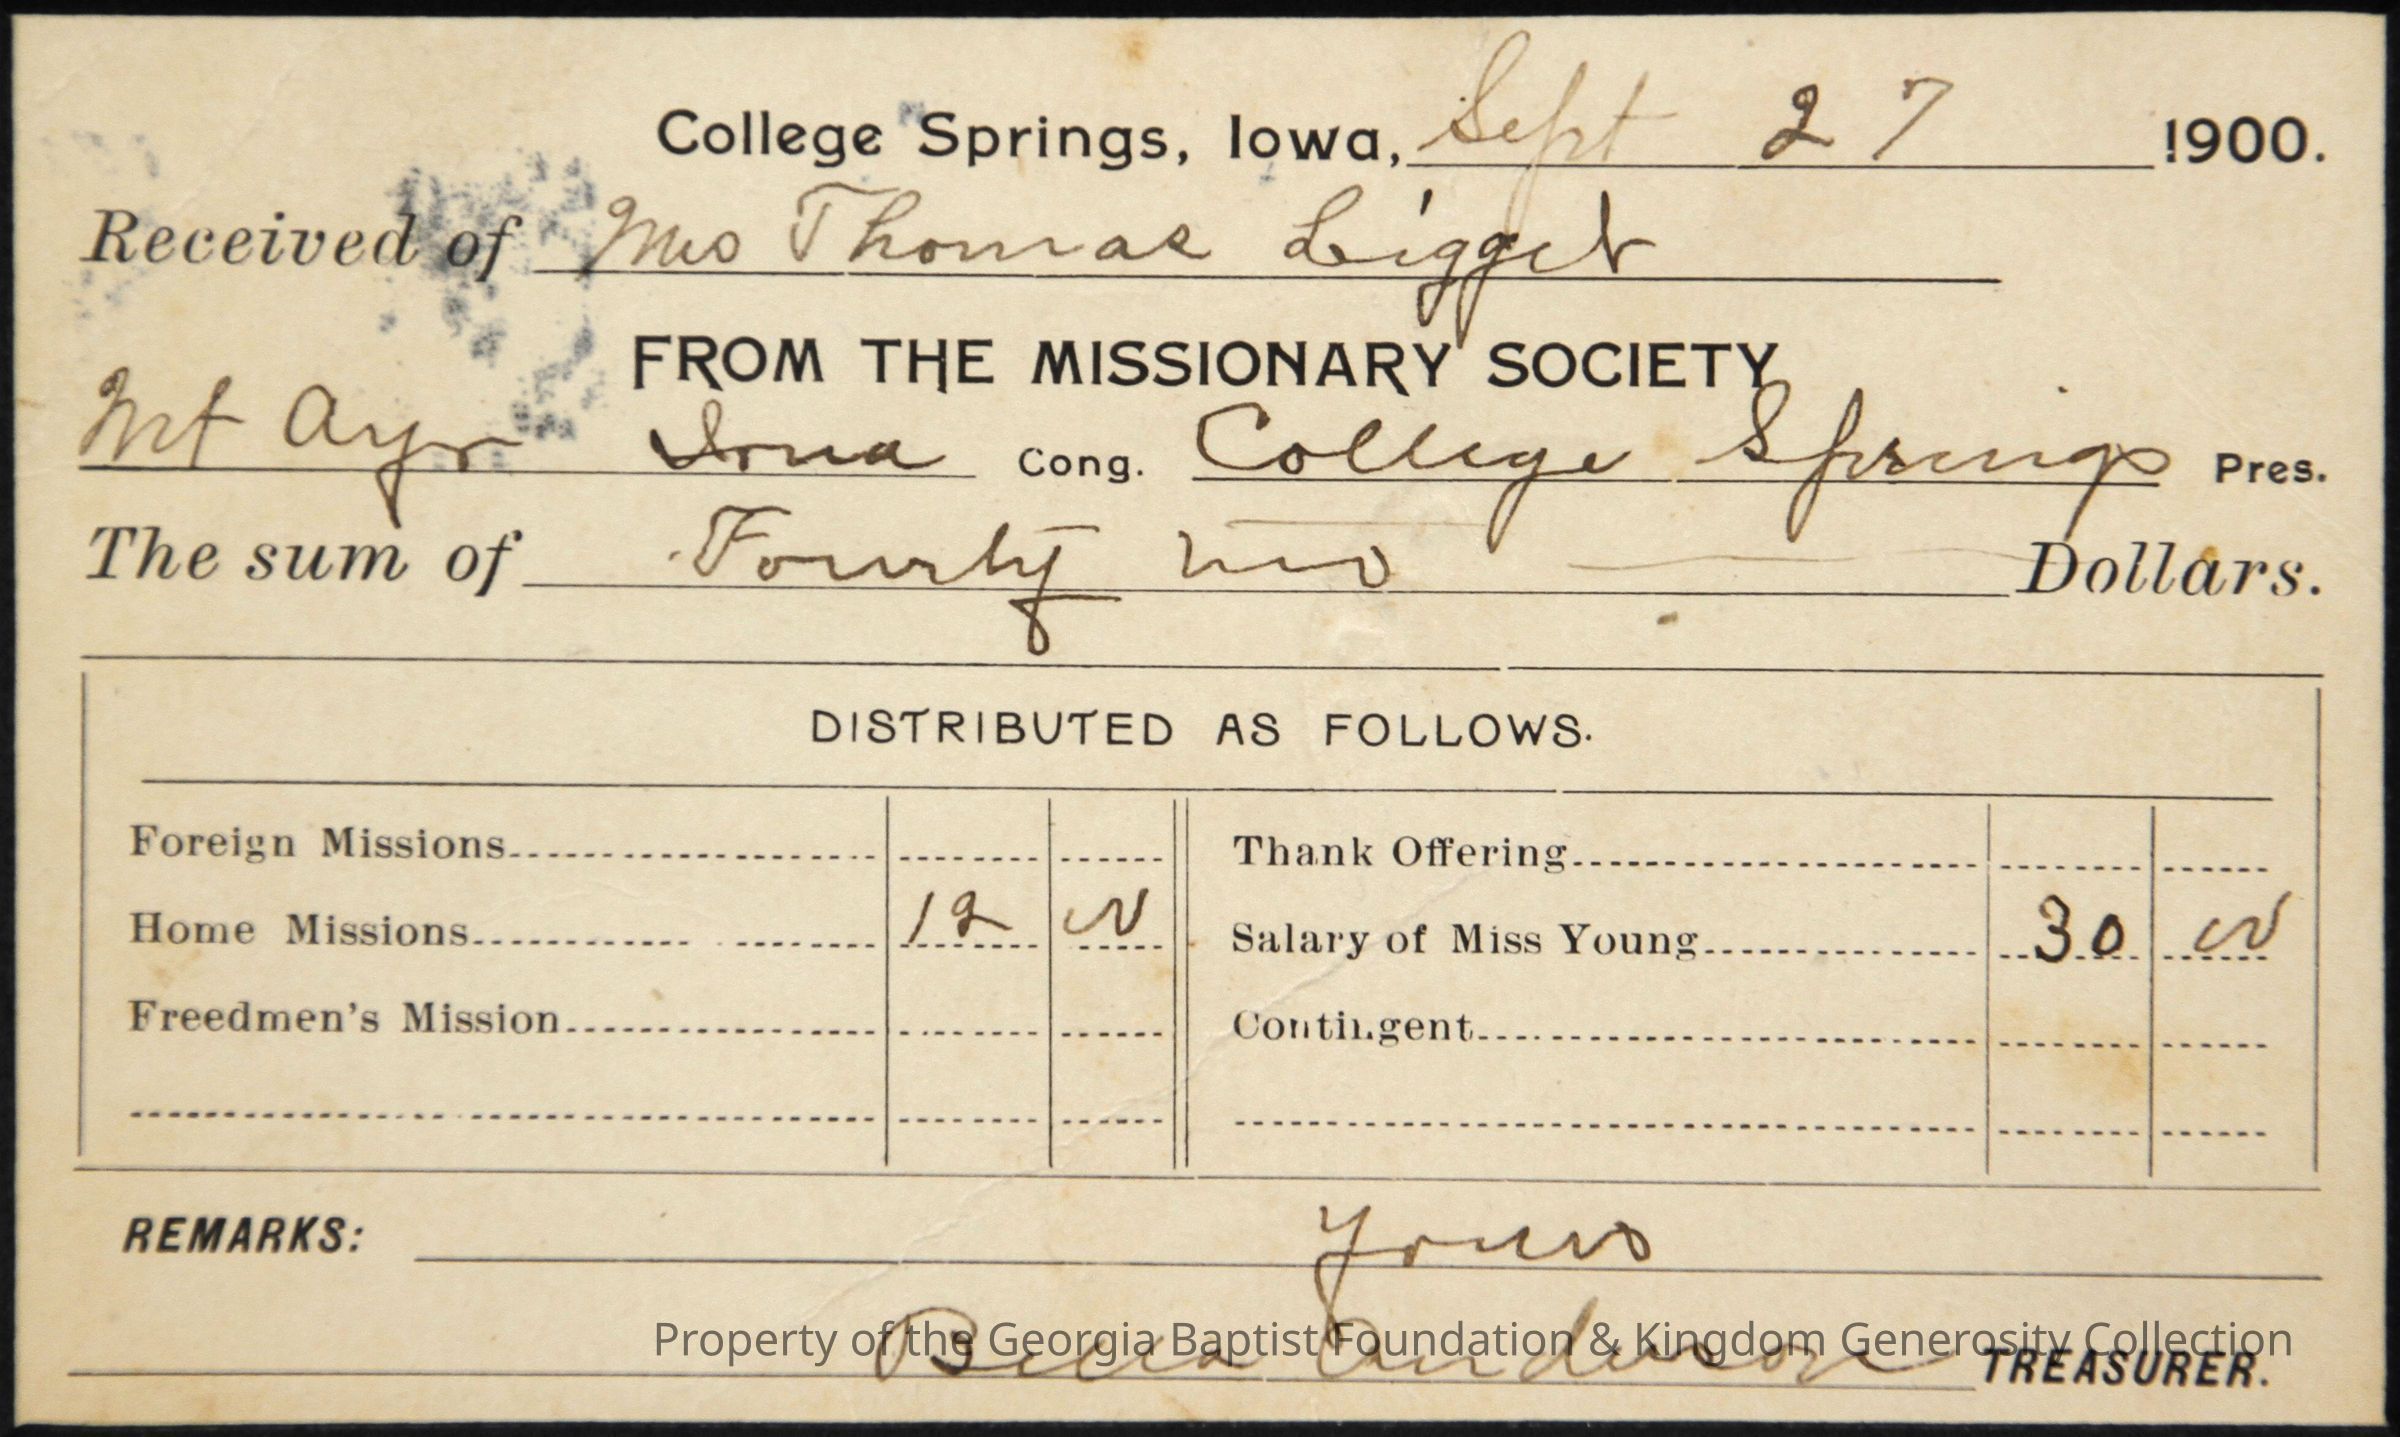 College Springs, Iowa, Sept 27 1900.
Received of Mrs Thomas Ligget
FROM THE MISSIONARY SOCIETY
Mt Ayr Iowa Cong. College Springs Pres.
The sum of Fourty two Dollars.
DISTRIBUTED AS FOLLOWS.
Foreign Missions Thank Offering
Home Missions 12 00 Salary of Miss Young 30 00
Freedmen's Mission Contingent
REMARKS: Yours
Bella Anderson TREASURER.
Property of the Georgia Baptist Foundation & Kingdom Generosity Collection